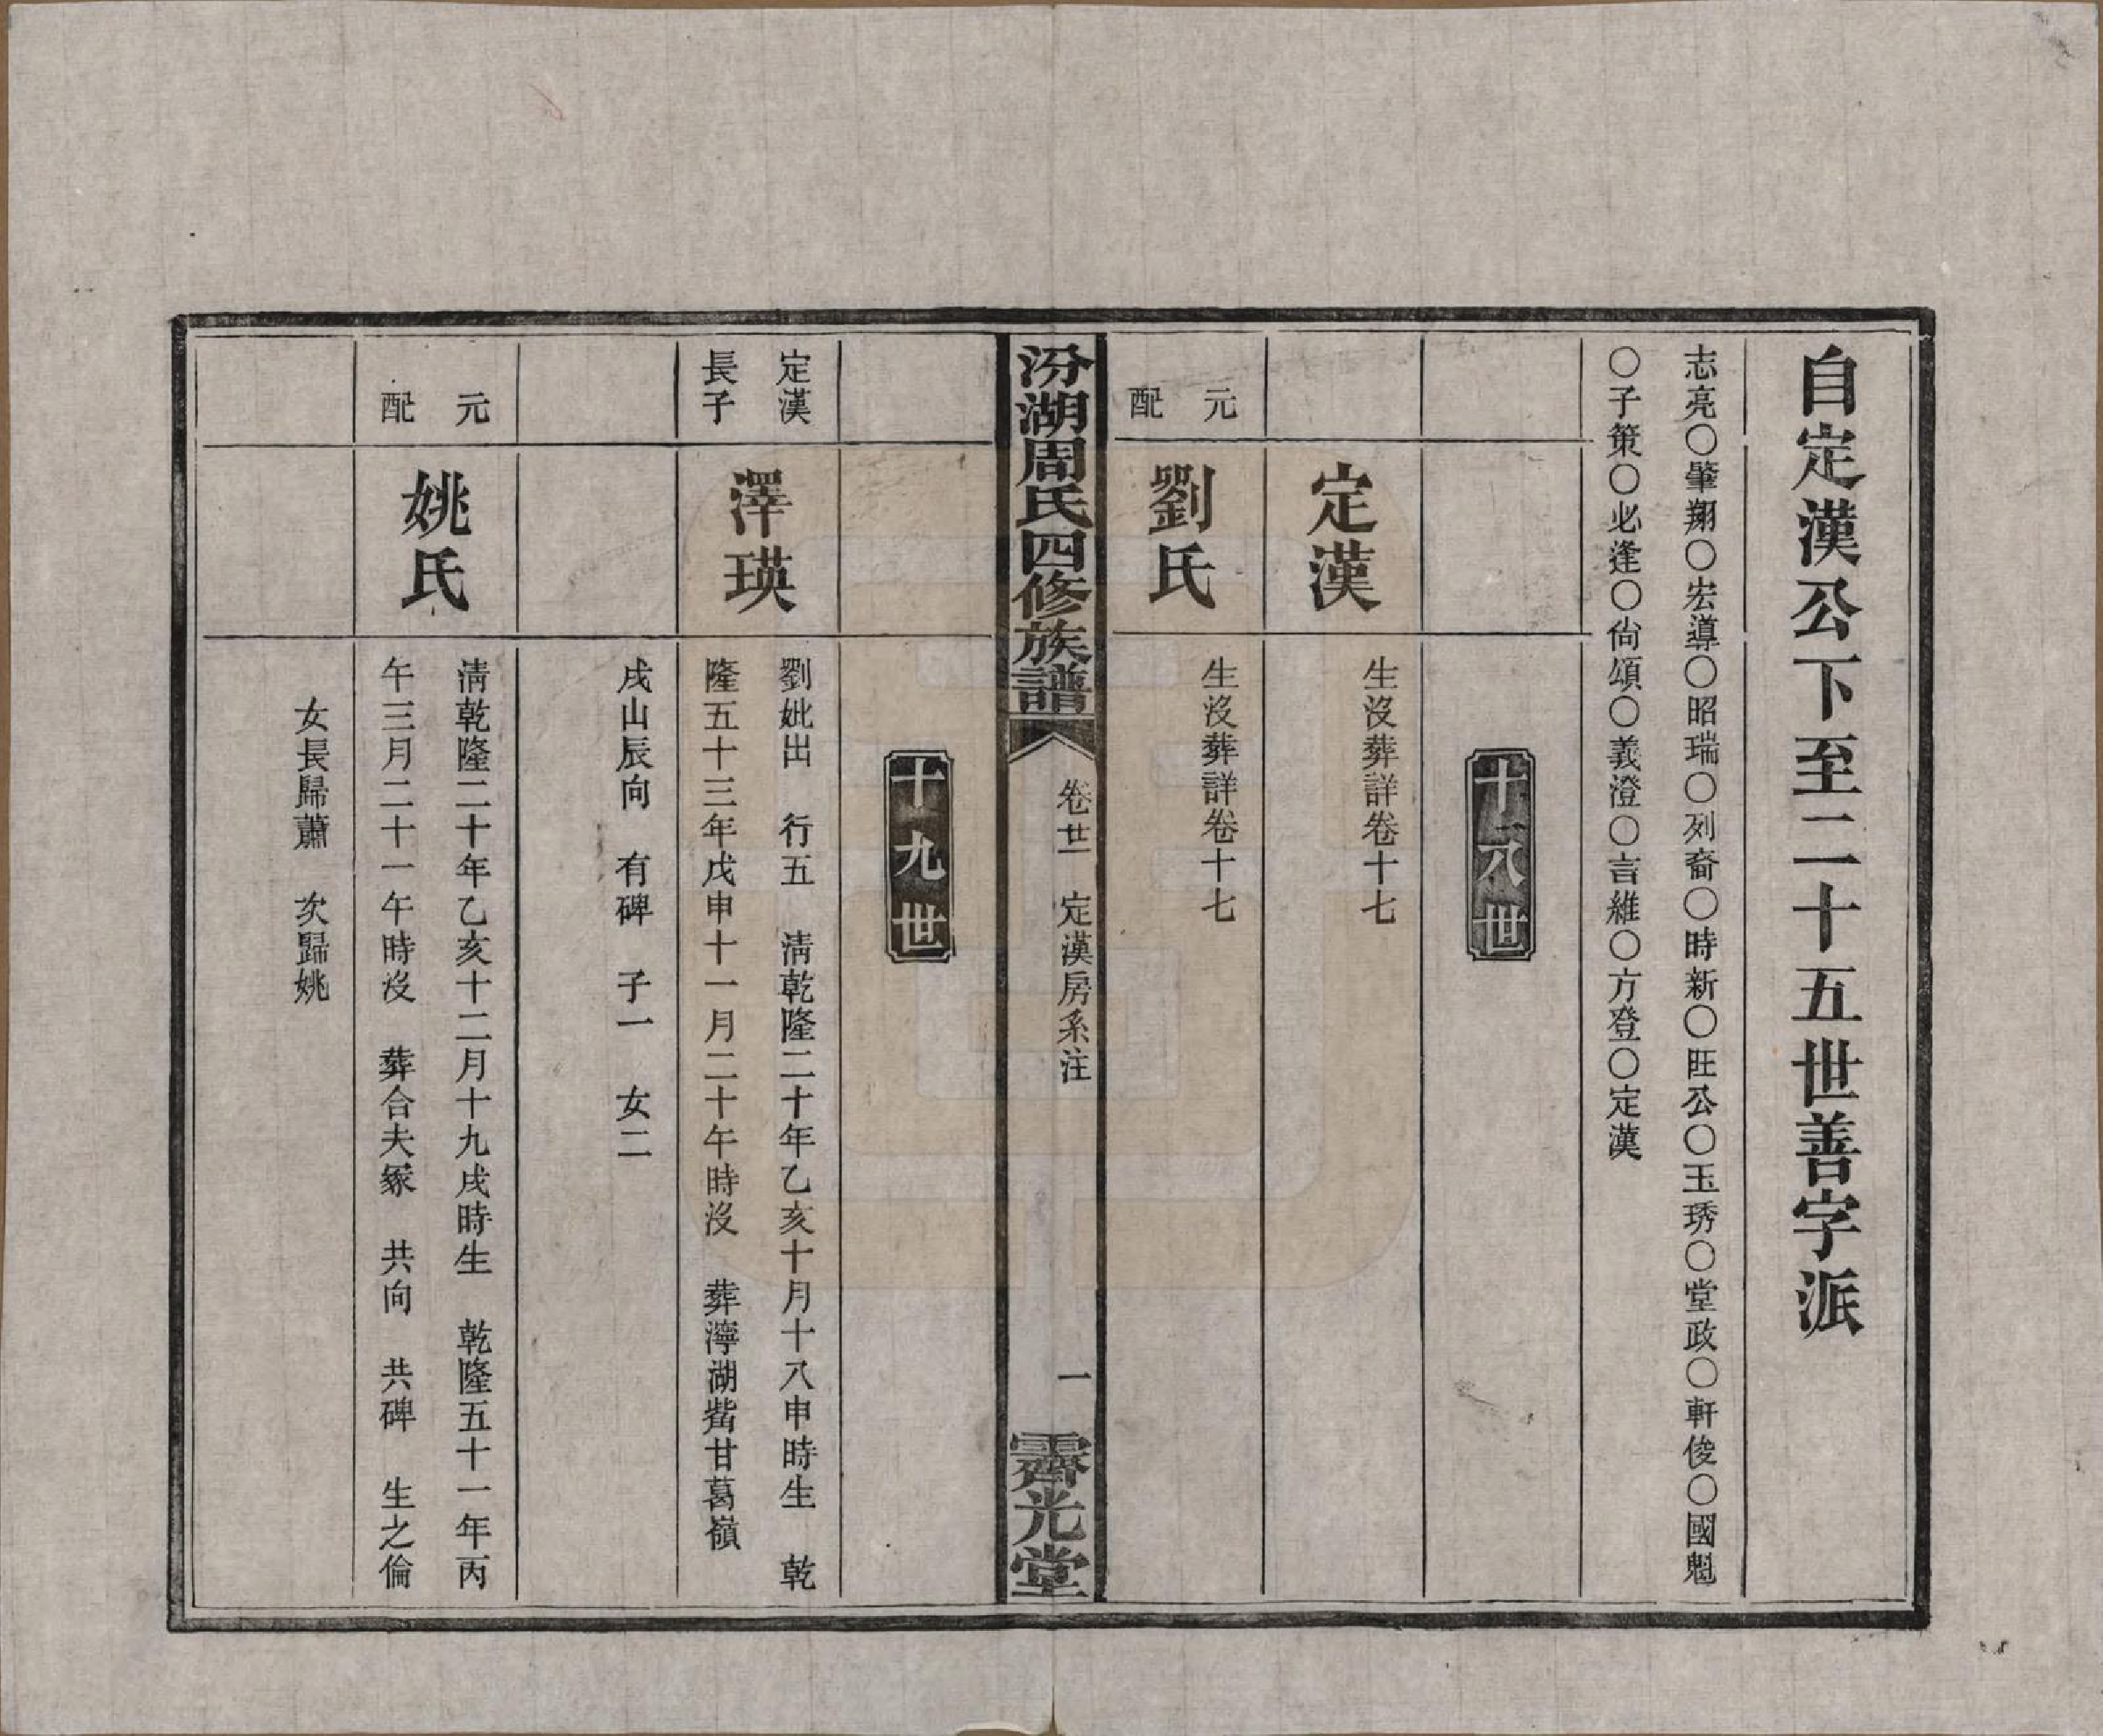 自定漢公下至二十五世善字派
志亮〇肇翔〇宏導〇昭瑞〇列裔〇時新〇旺公〇玉琇〇堂政〇軒俊〇國魁
〇子策〇必逢〇尙頌〇義澄〇言維〇方登〇定漢
十八世
定漢
生沒葬詳卷十七
元配
劉氏
生沒葬詳卷十七
汾湖周氏四修族譜
卷廿一 定漢房系注
一
霽光堂
十九世
定漢
長子
澤瑛
劉妣出 行五 淸乾隆二十年乙亥十月十八申時生 乾
隆五十三年戊申十一月二十午時沒 葬濘湖甘葛嶺
戌山辰向 有碑 子一 女二
元配
姚氏
淸乾隆二十年乙亥十二月十九戌時生 乾隆五十一年丙
午三月二十一午時沒 葬合夫冢 共向 共碑 生之倫
女長歸蕭 次歸姚